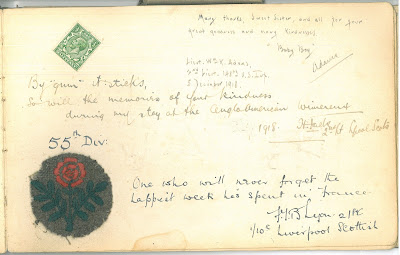 Many thanks, Sweet Sister, and all for your
great goodness and many kindnesses
"Baby Boy"
Adams
Lieut. Wm. H. Adams,
5 December 1918.
By "gum" it sticks,
So will the memories of your kindness
during my stay at the Anglo American
1918.
55th Div:
One who will never forget the
happiest week he's spent in France.
2/Lt
1/10th Liverpool Scottish